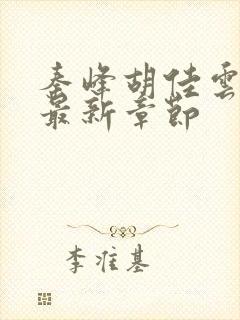 秦峰胡佳雲
最新章節
李准基